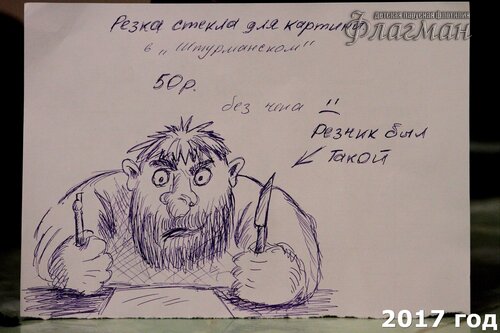 Резка стекла для картины
детская парусная флотилия
Флагман
в „Штурманском"
50р.
без чека
Резчик был
такой
2017 год